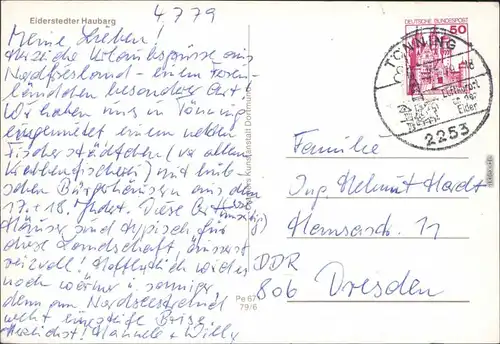 Eiderstedter Haubarg
4.7.79
Meine Lieben!
Herzliche Urlaubsgrüsse aus
Nordfriesland - einem Ferien-
ländchen besonderer Art.
Wir haben uns in Tönning
eingemietet einem netten
Fischerstädtchen (vor allem
Krabbenfischerei) mit hüb-
schen Bürgerhäusern aus dem
17. + 18. Jhdert. Diese
Häuser sind typisch für
diese Landschaft, äusserst
reizvoll! Hoffentlich wird es
noch wärmer + sonniger
denn am Nordseestrand
weht eine steife Brise.
Herzlichst! + Willy
DEUTSCHE BUNDESPOST
50
TÖNNING
Eider
2253
Familie
Ing. Helmut Hardt
11
DDR
806 Dresden
Pe 67
79/6